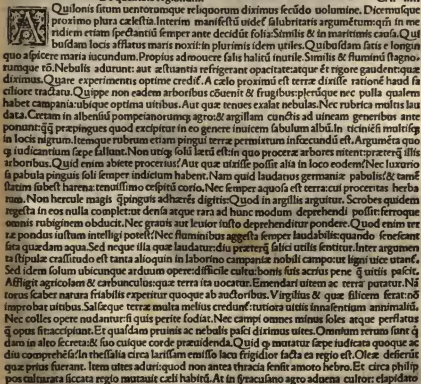 AQuilonis situm uentorumque reliquorum diximus secũdo uolumine. Dicemusque
proximo plura cælestia. Interim manifestũ uideť salubritatis argumẽtum: qm̃ in me
ridiem etiam spectantiũ semper ante decidũt folia. Similis & in maritimis causa. Qui
busdam locis afflatus maris noxii: in plurimis idem utiles. Quibusdam satis e longin
quo aspicere maria iucundum. Propius admouere salis halitũ inutile. Similis & fluminũ stagno-
rumque rõ. Nebulis adurunt: aut æstuantia refrigerant opacitate: atque et rigore gaudent: quæ
diximus. Quare experimentis optime credit̃. A cælo proximũ est terræ dixisse rationẽ haud fa
ciliore tractatu. Quippe non eadem arboribus cõuenit & frugibus: plerũque nec pulla qualem
habet campania: ubique optima uitibus. Aut quæ tenues exalat nebulas. Nec rubrica multis lau
data. Cretam in albensiũ pompeianorumque agro: & argillam cunctis ad uineam generibus ante
ponunt: q̃q̃ præpingues quod excipitur in eo genere inuicem sabulum albũ. In ticiniẽsi multisque
in locis nigrum. Itemque rubrum etiam pingui terræ permixtum infœcundũ est. Argumẽta quoque
iudicantium sæpe fallunt. Non utique solũ lætũ est in quo proceræ arbores nitent: præterque illis
arboribus. Quid enim abiete procerius? Aut quæ uixisse possit alia in loco eodem? Nec luxurio
sa pabula pinguis soli semper indicium habent. Nam quid laudatius germaniæ pabulis: & tamẽ
statim subest harena: tenuissimo cespitũ corio. Nec semper aquosa est terra: cui proceritas herba
rum. Non hercule magis q̃ pinguis adhærẽs digitis: Quod in argillis arguitur. Scrobes quidem
regesta in eos nulla complet: ut densa atque rara ad hunc modum deprehendi possit: ferroque
omnis rubiginem obducit. Nec grauis aut leuior iusto deprehenditur pondere. Quod enim ter
ræ pondus iustum intelligi potest? Nec fluminibus aggesta semper laudabilis: quando senescant
sata quædam aqua. Sed neque illa quæ laudatur: diu præterque salici utilis sentitur. Inter argumen
ta stipulæ crassitudo est tanta alioquin in laborino campaniæ nobili campo: ut ligni uice utant̃.
Sed idem solum ubicunque arduum opere: difficile cultu: bonis suis acrius pene q̃ uitiis pascit.
Affligit agricolam & carbunculus: quæ terra ita uocatur. Emendari uitem ac terra putatur. Nã
torus scaber natura friabilis experitur quoque ab auctoribus. Virgilius & quæ filicem ferat: nõ
improbat uitibus. Salsæque terræ multa melius credunt̃: tutiora uitiis innascentium animaliũ.
Nec colles opere nudantur: si quis perite fodiat. Nec campi omnes minus soles atque perflatus
q̃ opus sit: accipiunt. Et quasdam pruinis ac nebulis pasci diximus uites. Omnium rerum sunt q̃
dam in alto secreta: & suo cuique corde præuidenda. Quid q̃ mutatur sæpe iudicata quoque ac
diu comprehẽsa: In thessalia circa larissam emisso lacu frigidior facta ea regio est. Oleæ desierũt
quæ prius fuerant. Item uites aduri: quod non antea thracia sensit amoto hebro. Et circa philip
pos culturata siccata regio mutauit cæli habitũ. At in syracusano agro aduena cultor elapidato